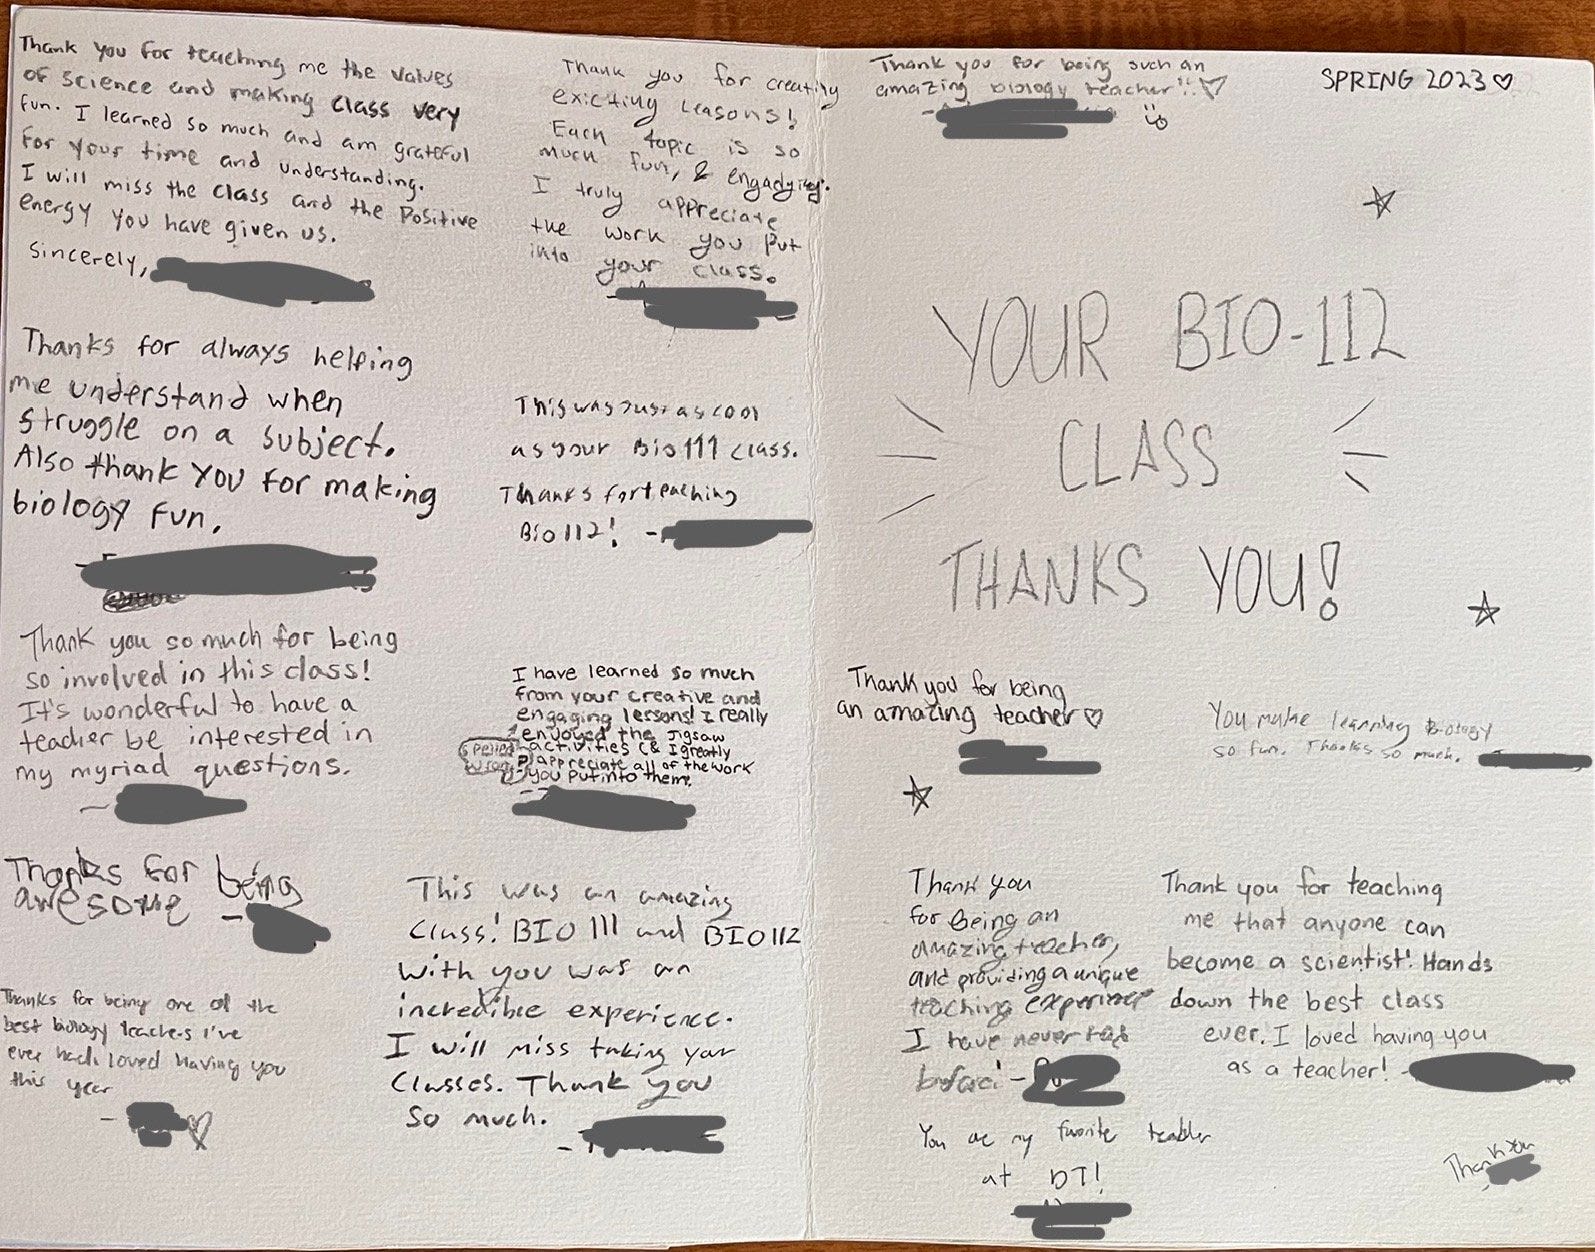 Thank you for teaching me the values
of science and making class very
fun. I learned so much and am grateful
for your time and understanding.
I will miss the class and the Positive
energy you have given us.
Sincerely,
Thanks for always helping
me understand when
struggle on a subject.
Also thank you for making
biology fun.
Thank you so much for being
so involved in this class!
It's wonderful to have a
teacher be interested in
my myriad questions.
Thanks for being
awesome
Thanks for being one of the
best biology teachers I've
ever had. loved having you
this year
Thank you for creating
exicting leasons!
Each topic is so
much fun, & engadying.
I truly appreciate
the work you put
into your class.
This was just as cool
as your Bio 111 class.
Thanks for teaching
Bio 112!
I have learned so much
from your creative and
engaging lessons! I really
enjoyed the Jigsaw
activities (& I greatly
appreciate all of the work
you put into them.
spelled
wrong
This was an amazing
Class! BIO 111 and BIO 112
with you was an
incredible experience.
I will miss taking your
Classes. Thank you
so much.
Thank you for being such an
amazing biology teacher!! ♡
SPRING 2023 ♡
YOUR BIO-112
CLASS
THANKS YOU!
Thank you for being
an amazing teacher ♡
You make learning Biology
so fun. Thanks so much.
Thank you
for Being an
amazing teacher,
and providing a unique
teaching experience
I have never had
before!
Thank you for teaching
me that anyone can
become a scientist! Hands
down the best class
ever. I loved having you
as a teacher!
You are my favorite teacher
at DT!
Thank You